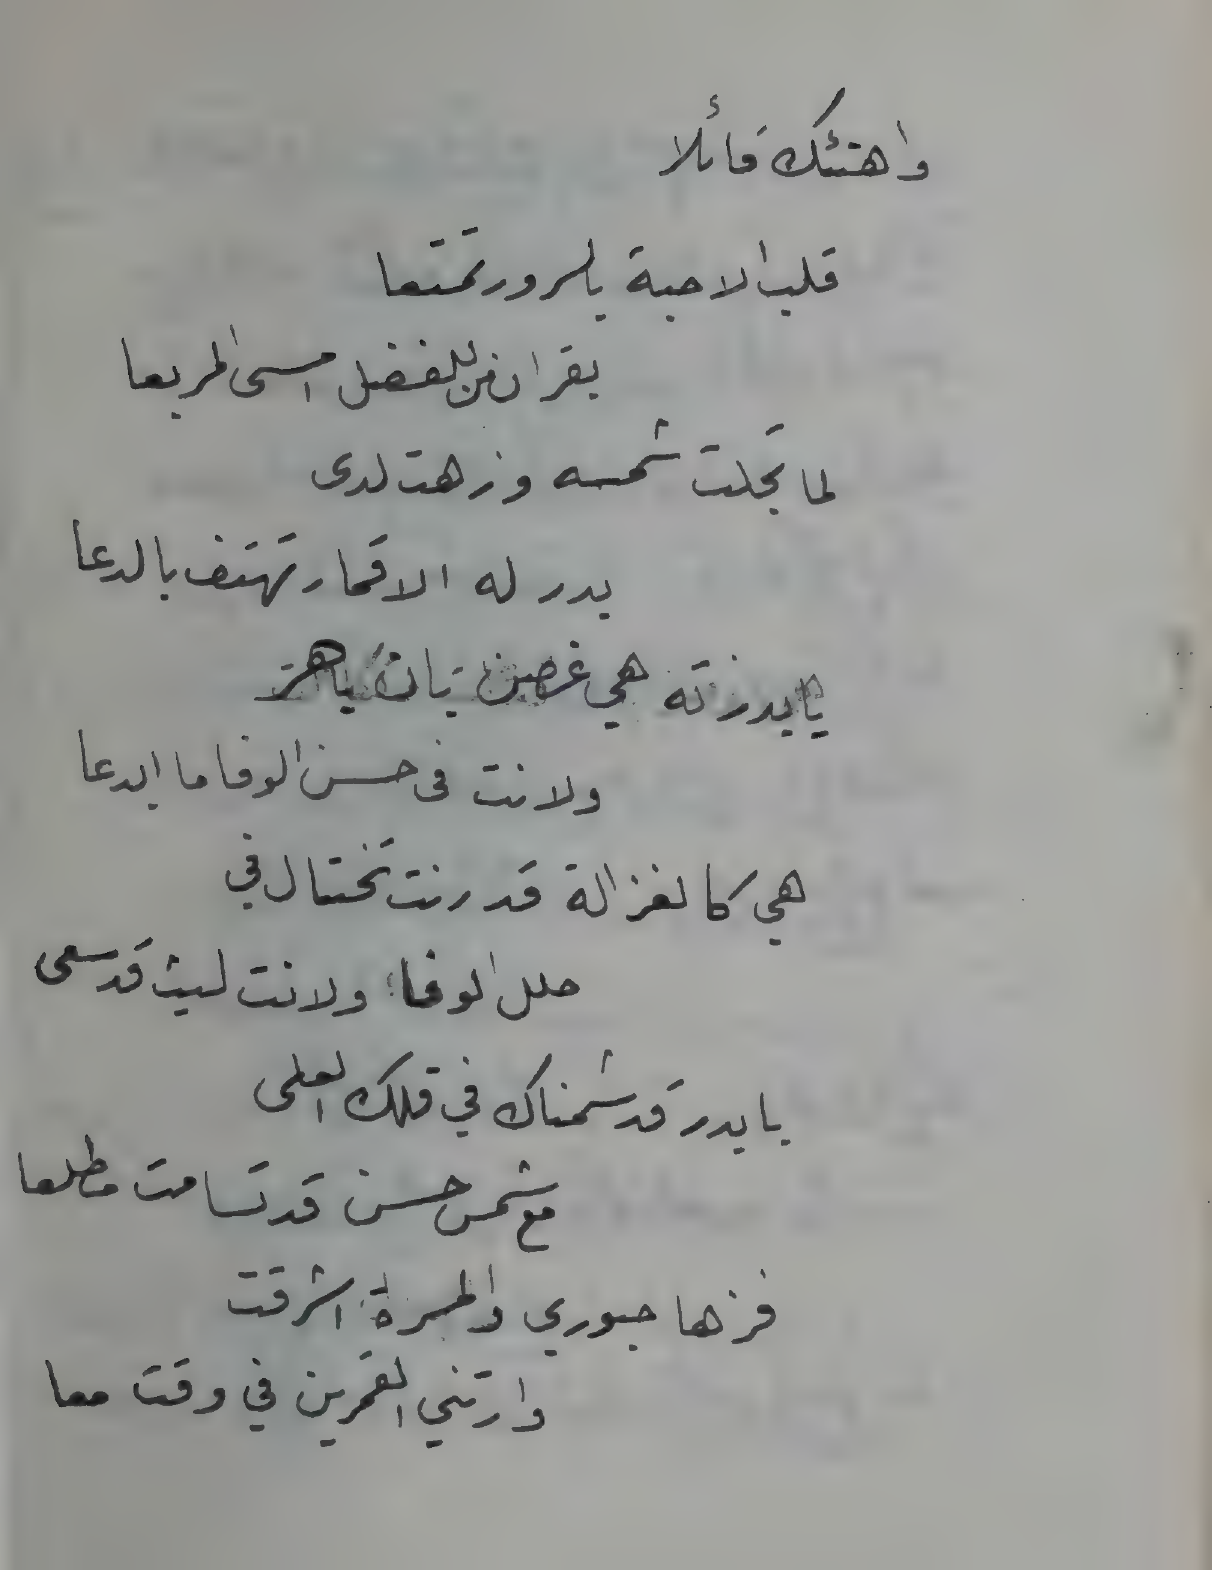 واهنئك قائلا
قلب الاحبة بالسرور تمتعا
بقران من للفضل امسى المربعا
لما تجلت شمسه وزهت لدى
بدر له الاقمار تهتف بالدعا
يابدرته هي غصن بان ياهر
ولانت في حسن الوفا ما ابدعا
هي كالغزالة قد رنت تختال في
حلل الوفا ولانت ليث قد سعى
يا بدر قد شمناك في فلك العلى
مع شمس حسن قد تسامت مطلعا
فزها حبوري والمسرة اشرقت
وارتني القمرين في وقت معا